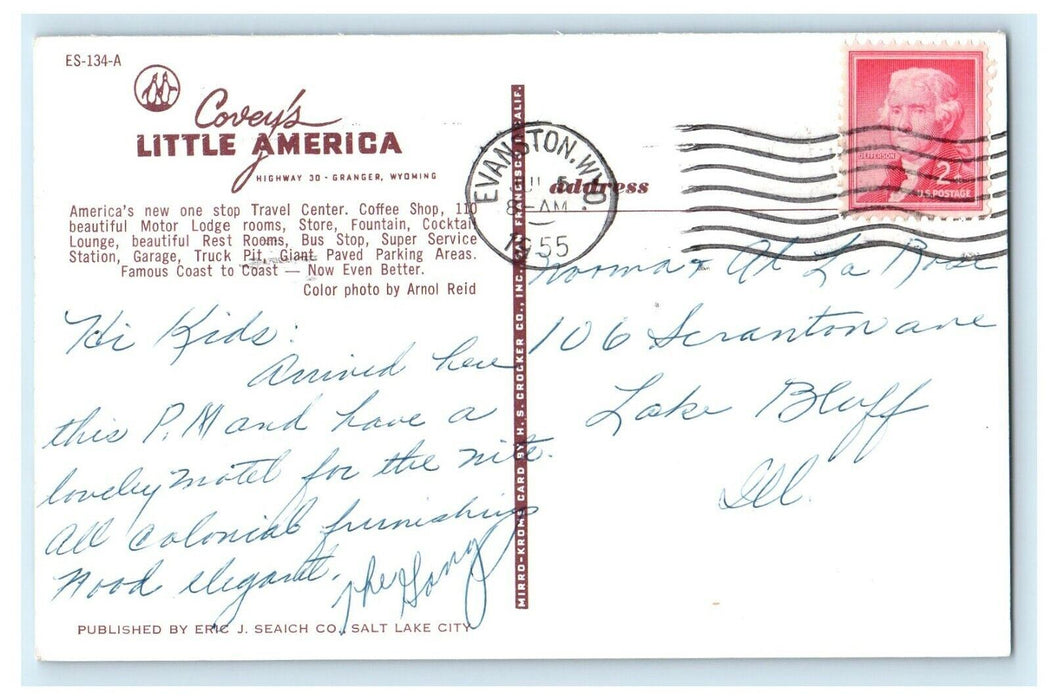 ES-134-A
Covey's
LITTLE AMERICA
HIGHWAY 30 - GRANGER, WYOMING
America's new one stop Travel Center. Coffee Shop, 110
beautiful Motor Lodge rooms, Store, Fountain, Cocktail
Lounge, beautiful Rest Rooms, Bus Stop, Super Service
Station, Garage, Truck Pit, Giant Paved Parking Areas.
Famous Coast to Coast — Now Even Better.
Color photo by Arnol Reid
Hi Kids:
Arrived here
this P.M and have a
lovely motel for the nite.
All colonial furnishings
Mood elegant.
The Gang
PUBLISHED BY ERIC J. SEAICH CO., SALT LAKE CITY
MIRRO-KROME CARD BY H. S. CROCKER CO., INC., SAN FRANCISCO, CALIF.
EVANSTON, WYO.
5
8 AM
1955
address
JEFFERSON
2¢
U.S. POSTAGE
Norma & Al La Rose
106 Scranton ave
Lake Bluff
Ill.